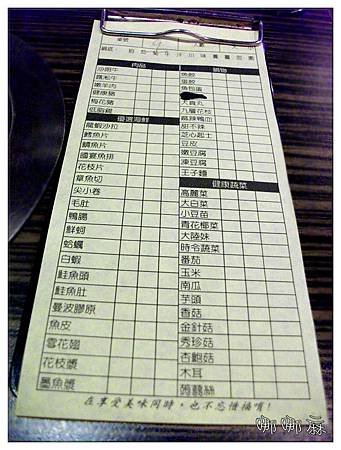 桌號 人數
鍋底
肉品
沙朗牛
霜淞牛
嫩羊肉
健康豬
梅花豬
低脂雞
優選海鮮
龍蝦沙拉
鱈魚片
鯛魚片
國宴魚排
花枝片
草魚切
尖小卷
毛肚
鴨腸
鮮蚵
蛤蠣
白蝦
鮭魚頭
鮭魚肚
曼波膠原
魚皮
雪花翅
花枝漿
墨魚漿
鍋物
魚餃
蛋餃
魚包蛋
大貢丸
九層花枝
麻辣鴨血
甜不辣
芝心起士
豆皮
嫩豆腐
凍豆腐
王子麵
健康蔬菜
高麗菜
大白菜
小豆苗
青花椰菜
大陸妹
時令蔬菜
番茄
玉米
南瓜
芋頭
香菇
金針菇
秀珍菇
杏鮑菇
木耳
蒟蒻絲
在享受美味同時，也不忘惜福唷！
娜娜霖